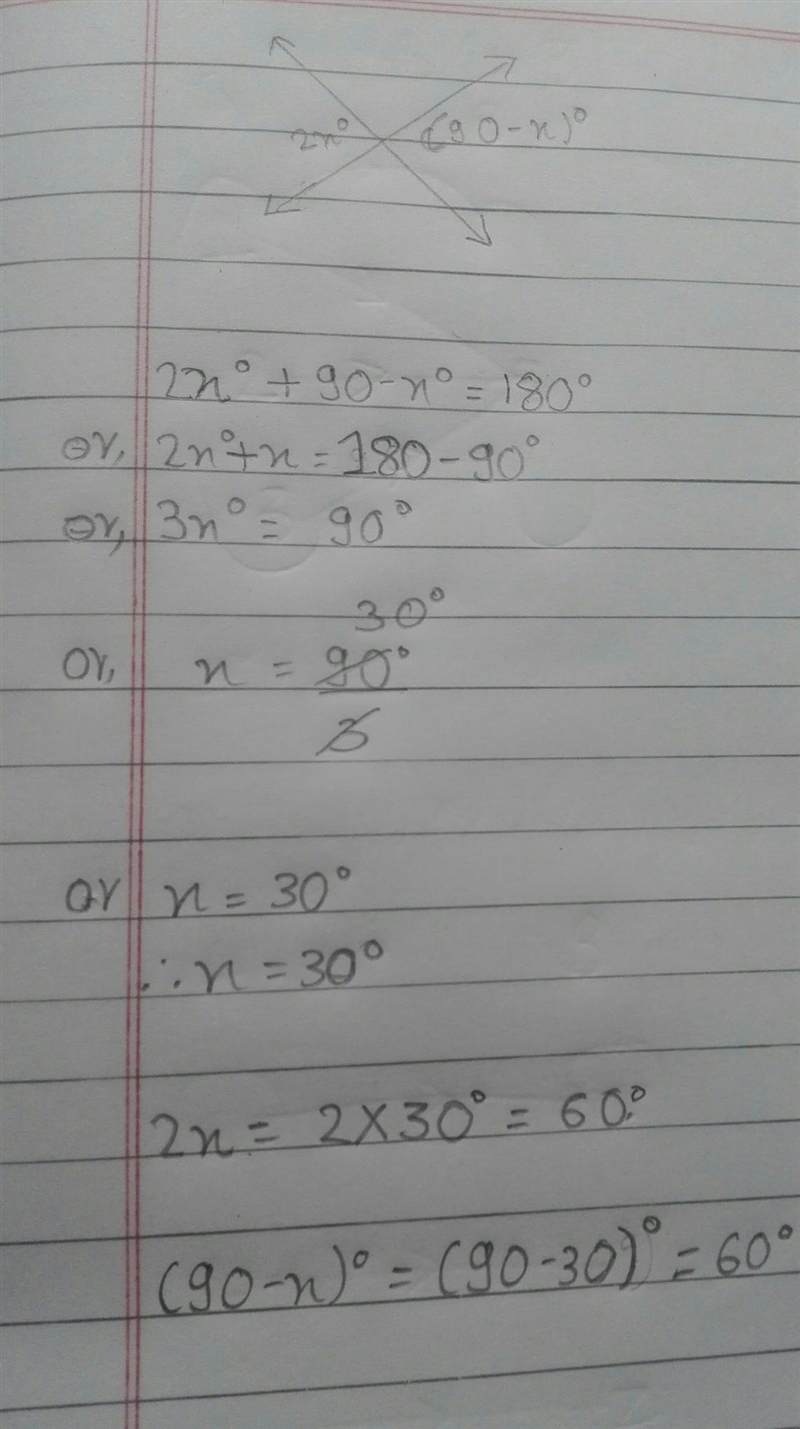 2x° (90-x)°
2x° + 90-x° = 180°
or, 2x°+x = 180-90°
or, 3x° = 90°
30°
or, x = 90°
3
or x = 30°
∴ x = 30°
2x = 2×30° = 60°
(90-x)° = (90-30)° = 60°